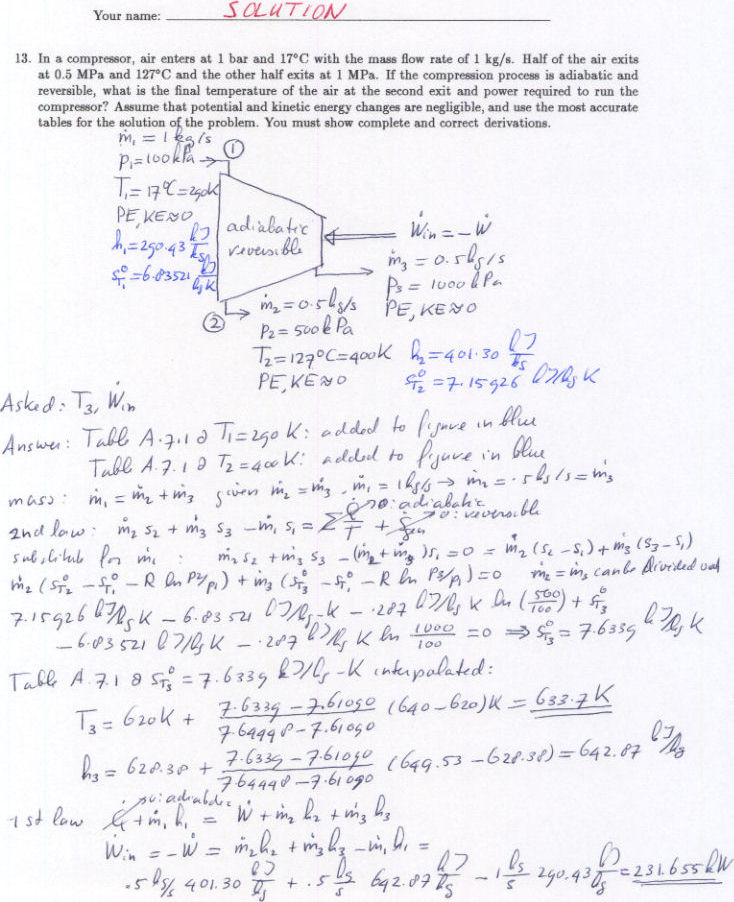 Your name: SOLUTION
13. In a compressor, air enters at 1 bar and 17°C with the mass flow rate of 1 kg/s. Half of the air exits
at 0.5 MPa and 127°C and the other half exits at 1 MPa. If the compression process is adiabatic and
reversible, what is the final temperature of the air at the second exit and power required to run the
compressor? Assume that potential and kinetic energy changes are negligible, and use the most accurate
tables for the solution of the problem. You must show complete and correct derivations.
ṁ₁ = 1 kg/s
P₁=100kPa → ①
T₁=17°C=290K
PE, KE≈0
h₁=290.43 kJ/kg
s°T₁=6.83521 kJ/kg K
adiabatic
reversible
Ẇin = -Ẇ
ṁ₃ = 0.5kg/s
P₃ = 1000 kPa
PE, KE≈0
② ṁ₂=0.5kg/s
P₂=500kPa
T₂=127°C=400K h₂=401.30 kJ/kg
PE, KE≈0 s°T₂=7.15926 kJ/kg K
Asked: T₃, Ẇin
Answer: Table A.7.1 @ T₁=290K: added to figure in blue
Table A.7.1 @ T₂=400K: added to figure in blue
mass: ṁ₁ = ṁ₂ + ṁ₃ given ṁ₂=ṁ₃, ṁ₁ = 1kg/s → ṁ₂ = .5kg/s=ṁ₃
2nd law: ṁ₂ s₂ + ṁ₃ s₃ - ṁ₁ s₁ = Σ Q̇/T + Ṡgen 0: adiabatic 0: reversible
substitute for ṁ₁ : ṁ₂ s₂ + ṁ₃ s₃ - (ṁ₂+ṁ₃)s₁ = 0 = ṁ₂ (s₂-s₁) + ṁ₃ (s₃-s₁)
ṁ₂ (s°T₂ - s°T₁ - R ln P₂/P₁) + ṁ₃ (s°T₃ - s°T₁ - R ln P₃/P₁) = 0 ṁ₂ = ṁ₃ can be divided out
7.15926 kJ/kg K - 6.83521 kJ/kg-K - .287 kJ/kg K ln (500/100) + s°T₃
- 6.83521 kJ/kg K - .287 kJ/kg K ln 1000/100 = 0 ⇒ s°T₃ = 7.6339 kJ/kg K
Table A.7.1 @ s°T₃ = 7.6339 kJ/kg-K interpolated:
T₃ = 620K + (7.6339 - 7.61090)/(7.64448 - 7.61090) (640-620)K = 633.7K
h₃ = 628.38 + (7.6339 - 7.61090)/(7.64448 - 7.61090) (649.53 - 628.38) = 642.87 kJ/kg
1st law Q̇ + ṁ₁ h₁ = Ẇ + ṁ₂ h₂ + ṁ₃ h₃ 0: adiabatic
Ẇin = -Ẇ = ṁ₂h₂ + ṁ₃h₃ - ṁ₁h₁ =
.5 kg/s 401.30 kJ/kg + .5 kg/s 642.87 kJ/kg - 1 kg/s 290.43 kJ/kg = 231.655kW